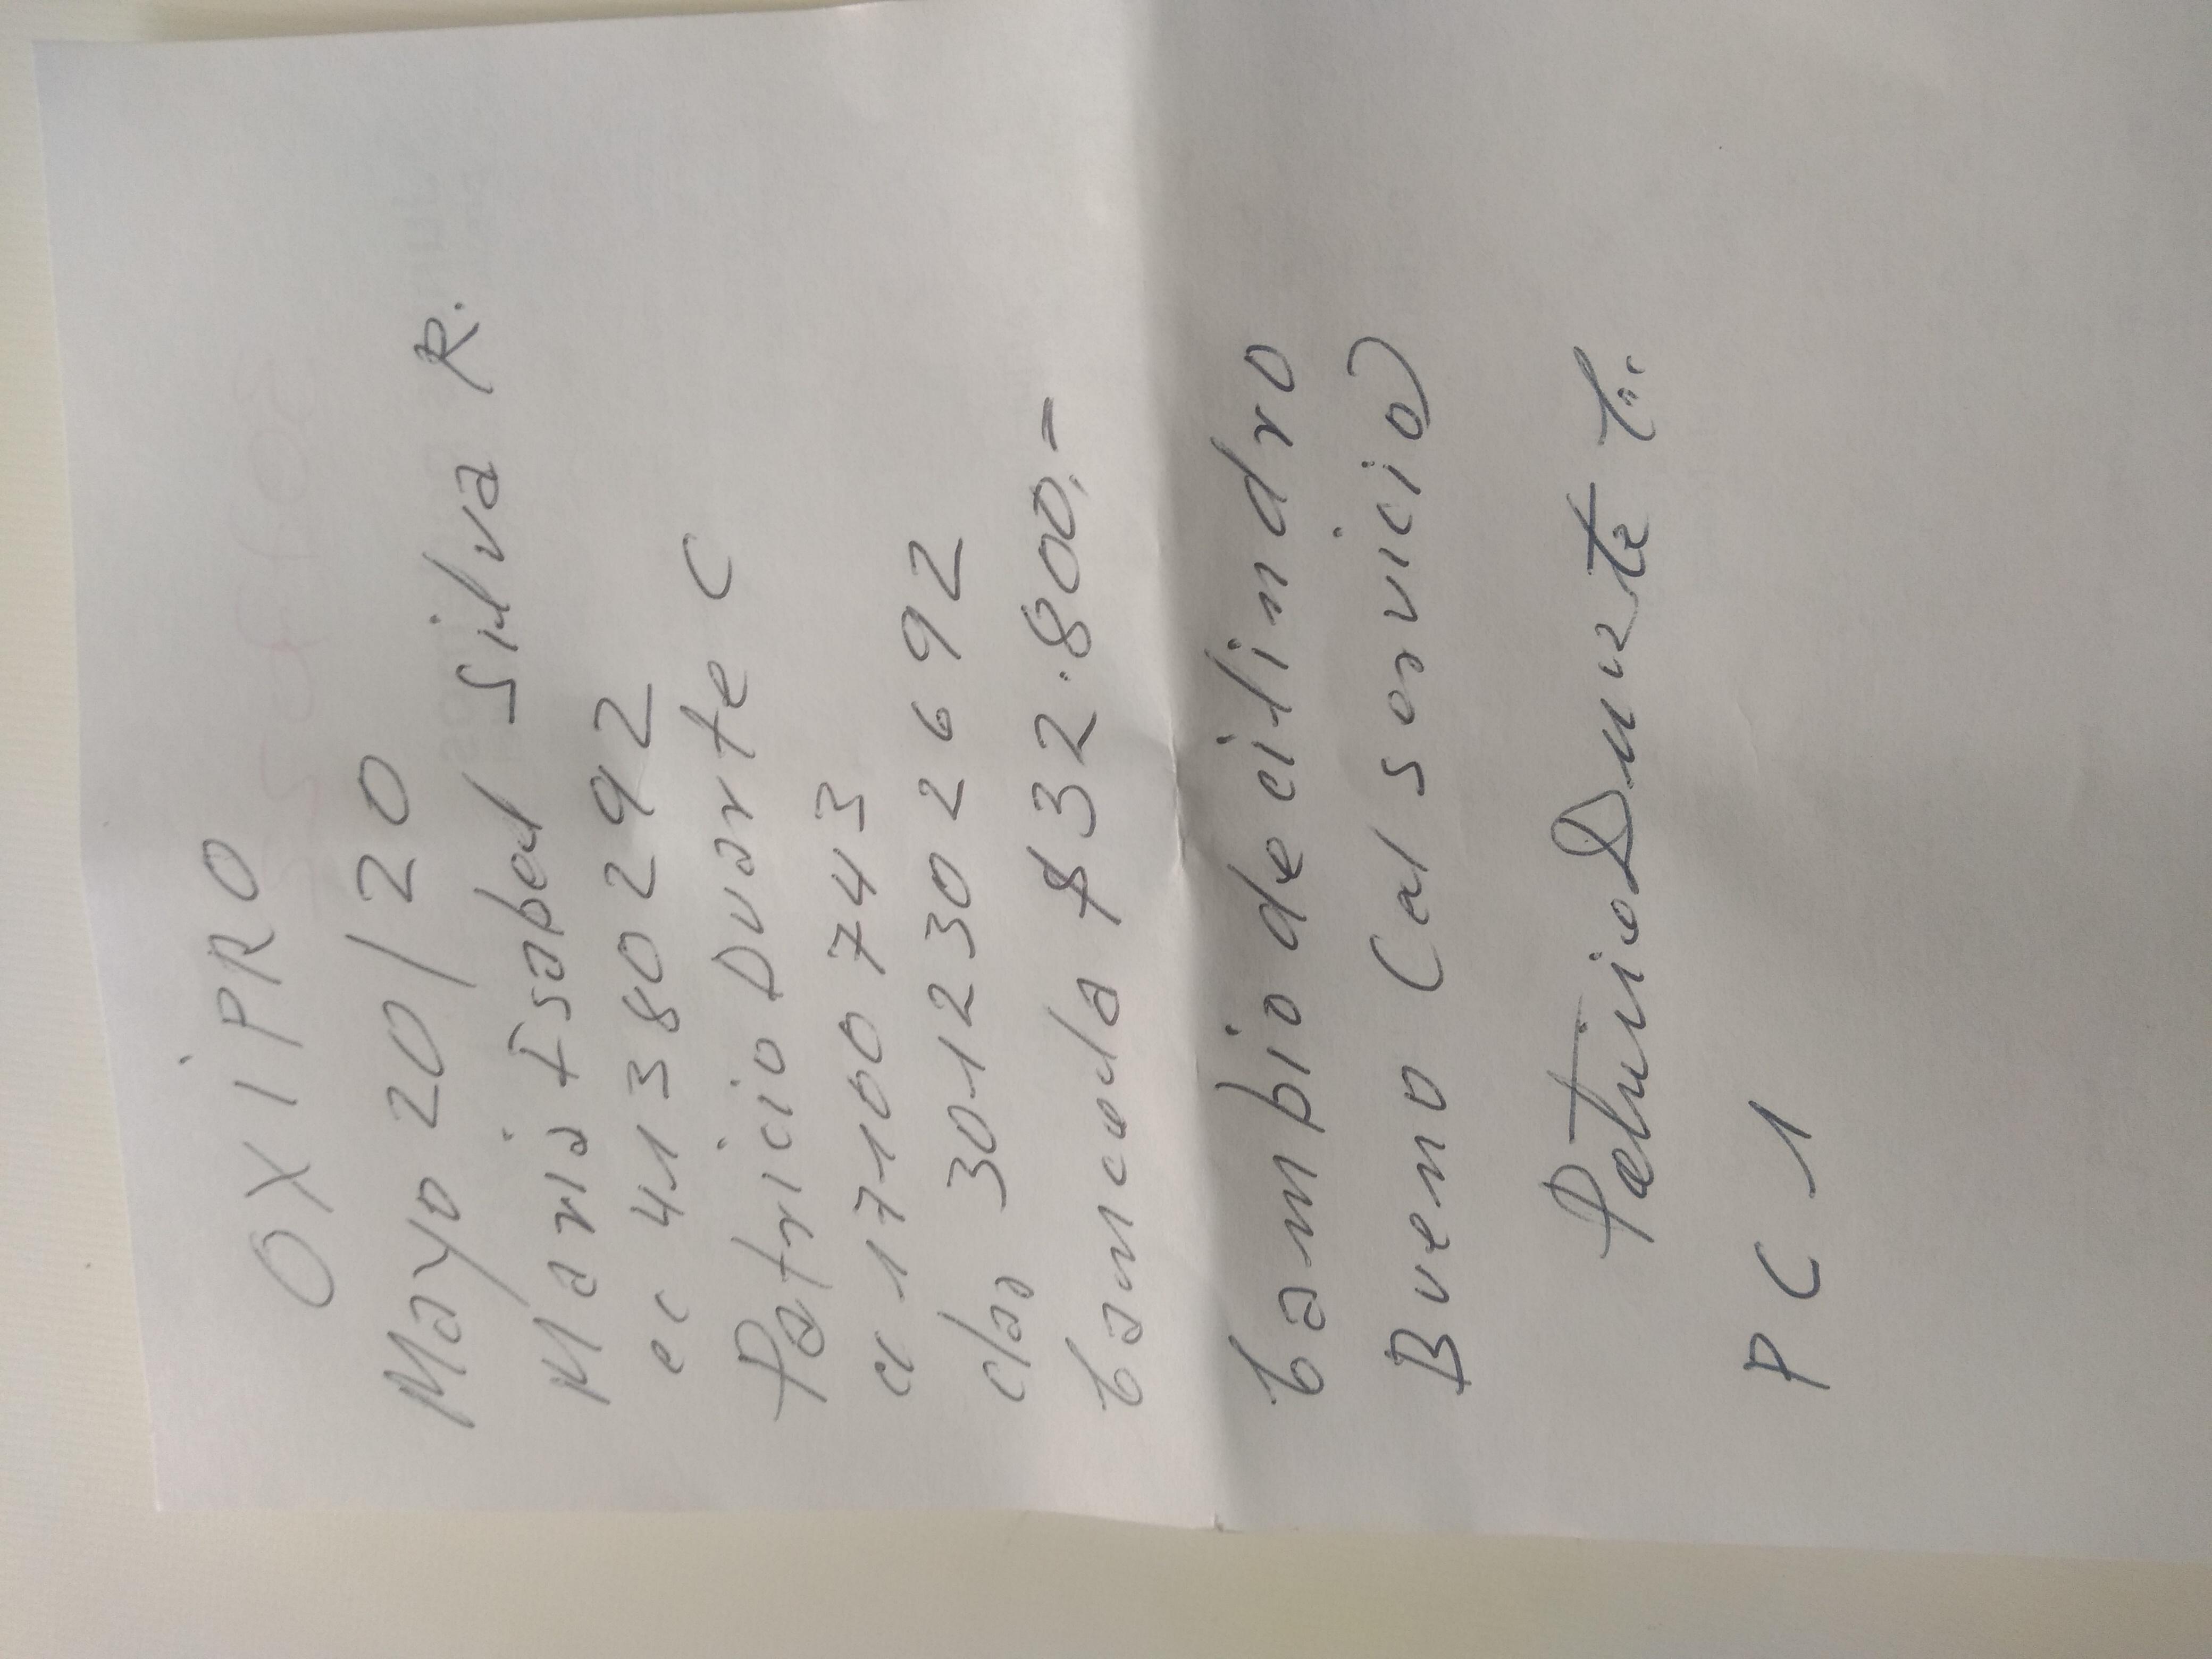 OXiPRO
Mayo 20/20
Maria Isabel Silva R.
cc 41380292
Patricio Duarte C
cc 17100743
clar 3012302692
Cancela $32.800,-
Cambio de cilindro
Bueno (al servicio)
Patricio Duarte C.
PC 1